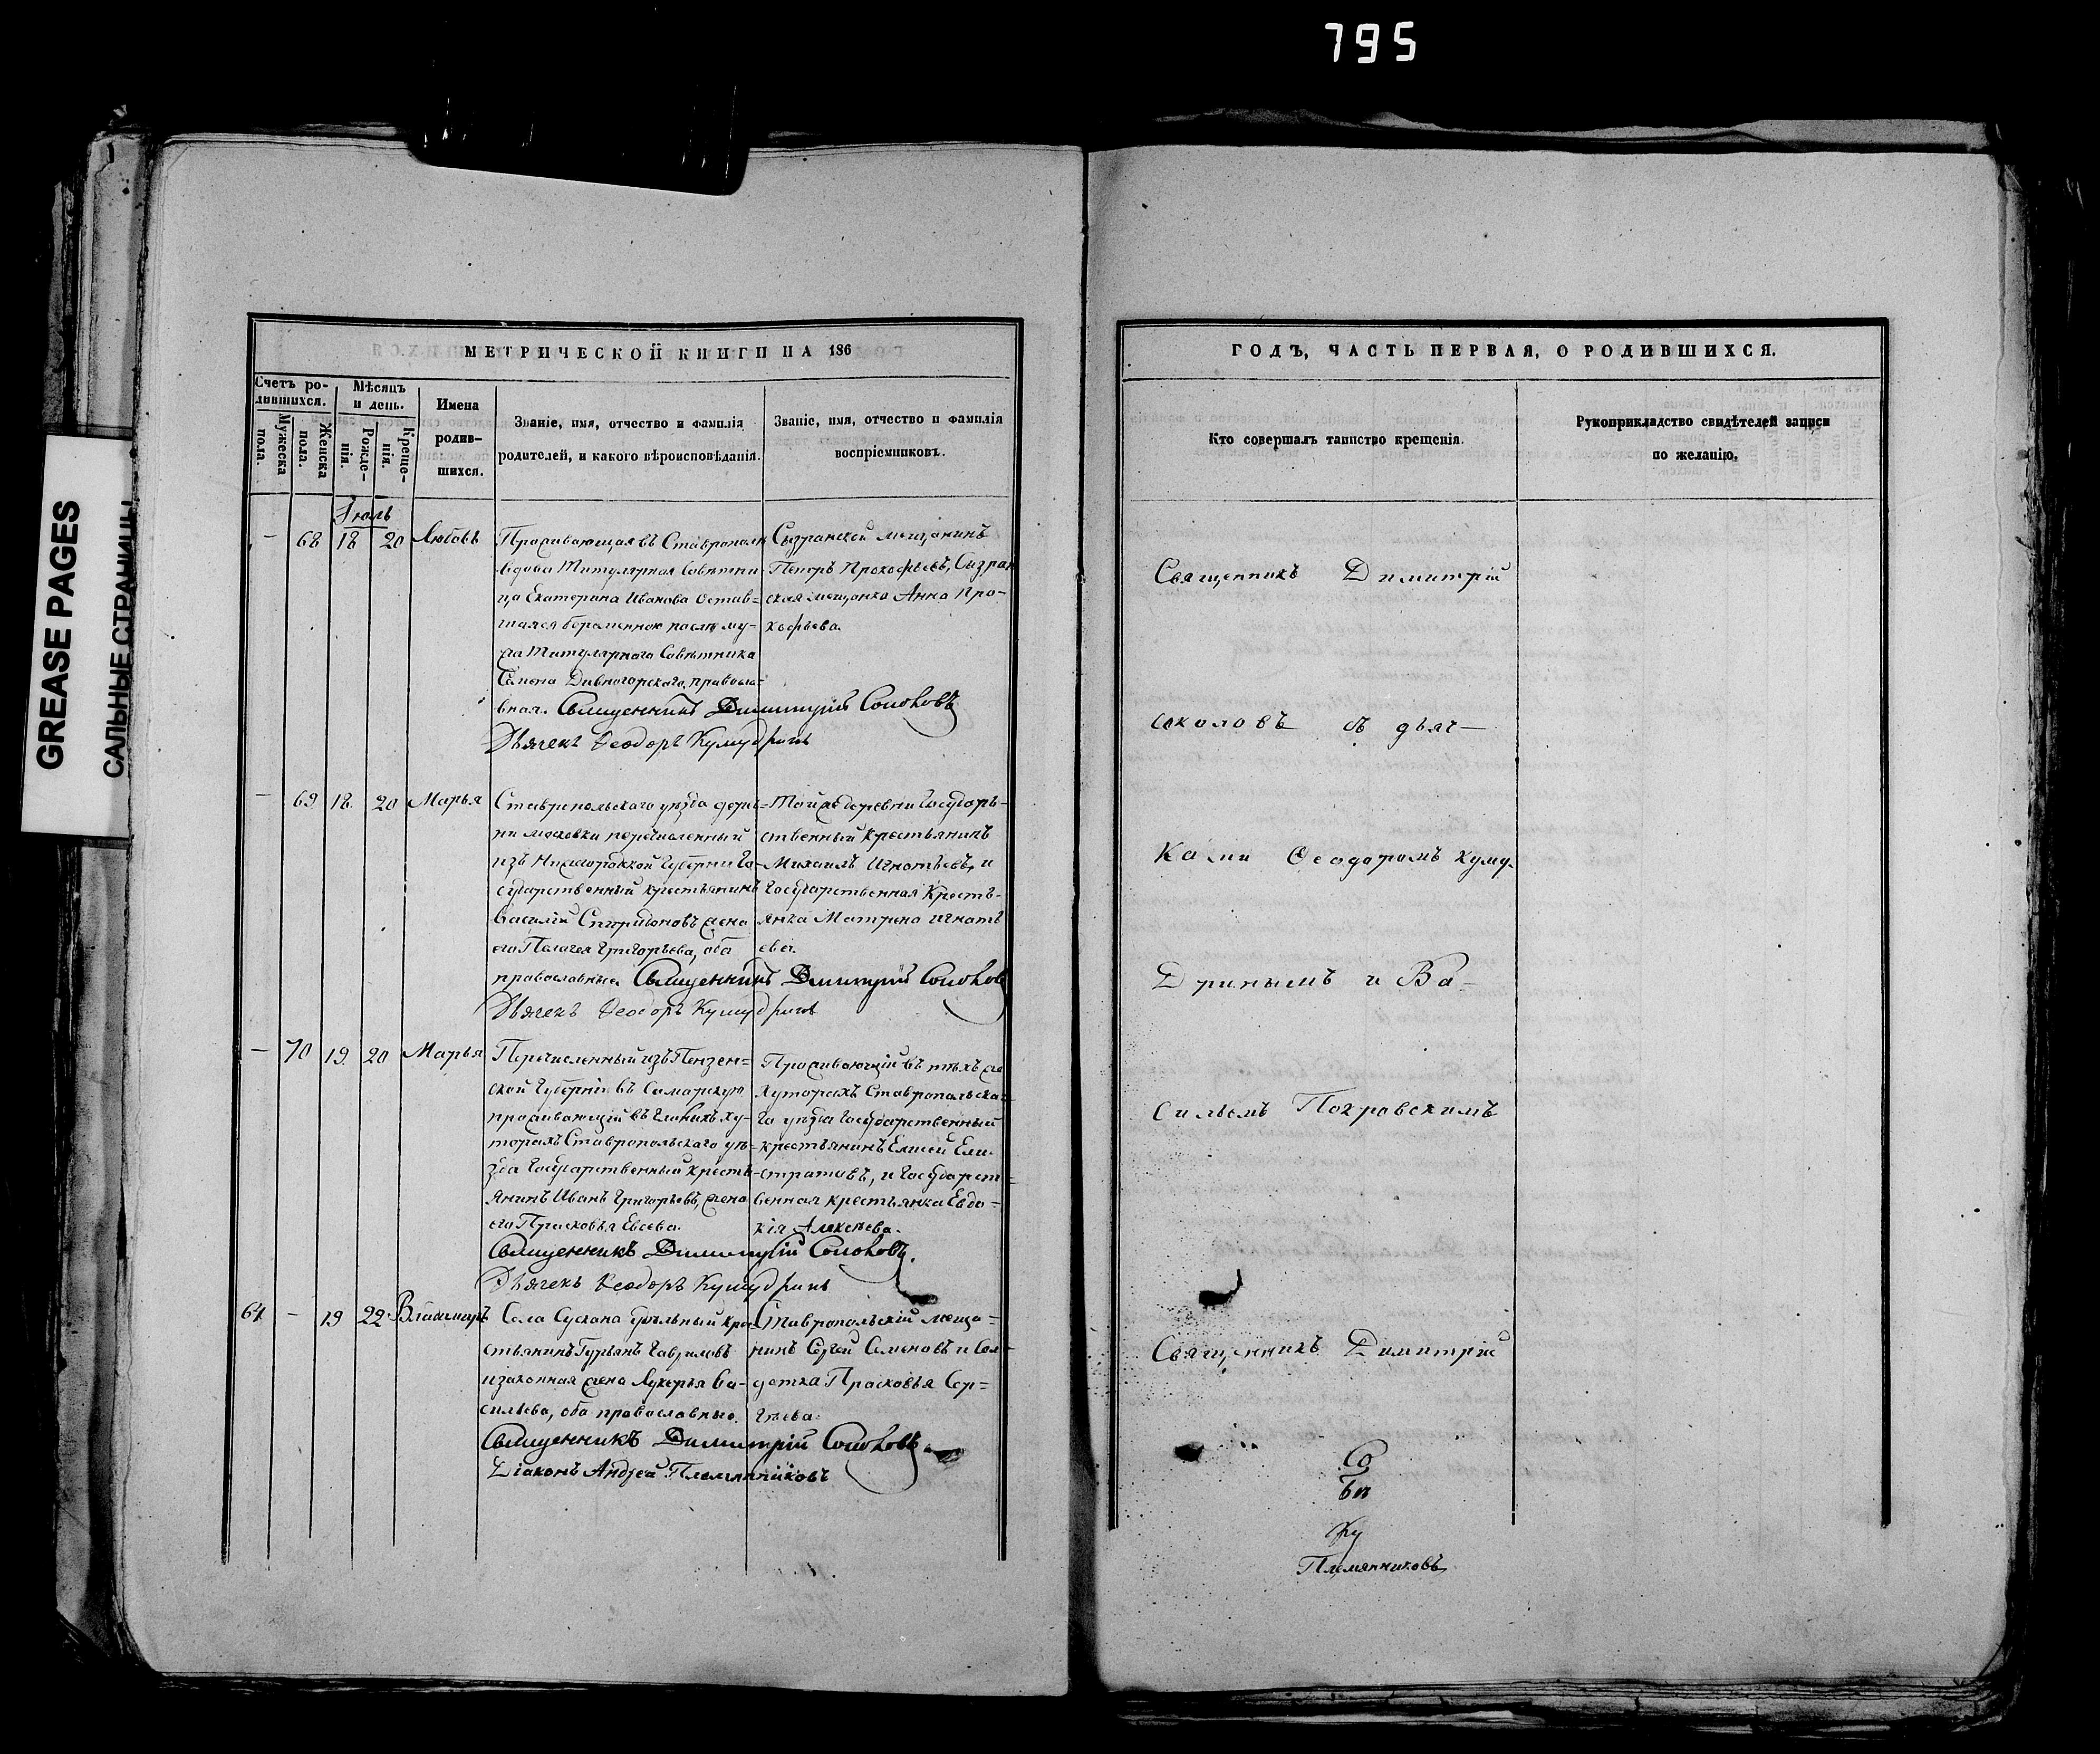 795
GREASE PAGES
САЛЬНЫЕ СТРАНИЦЫ
МЕТРИЧЕСКОЙ КНИГИ НА 186
Счетъ ро-
дившихся.
Мужеска
пола.
Женска
пола.
Мѣсяцъ
и день.
Рожде-
нія.
Креще-
нія.
Имена
родив-
шихся.
Званіе, имя, отчество и фамилія
родителей, и какого вѣроисповѣданія.
Званіе, имя, отчество и фамилія
воспріемниковъ.
Іюль
— 68 18 20 Любовь
Проживающая въ Ставрополѣ
вдова Титулярная Совѣтни-
ца Екатерина Иванова остав-
шаяся беременною послѣ му-
жа Титулярнаго Совѣтника
Дивногорскаго, правосла-
вная. Священникъ Димитрій Соколовъ
Дьячекъ Ѳеодоръ Кумудринъ
Сызранскій мещанинъ
Петръ Прокофьевъ, Сызран
ская мещанка Анна Про-
кофьева.
— 69 18 20 Марья
Ставропольскаго уѣзда дерев-
ни Московки перечисленный
изъ Нижегородской Губерніи Го-
сударственный крестьянинъ
Василій Спиридоновъ жена
его Пелагея Григорьева, оба
православные. Священникъ Димитрій Соколовъ
Дьячекъ Ѳеодоръ Кумудринъ
Той же деревни Государ-
ственный крестьянинъ
Михаилъ Игнатьевъ, и
Государственная Кресть-
янка Матрена Игнать
ева.
— 70 19 20 Марья
Перечисленный изъ Пензен-
ской Губерніи въ Самарскую
проживающій въ ху-
торахъ Ставропольскаго уѣ-
зда Государственный кресть-
янинъ Иванъ Григорьевъ, жена
его Прасковья Евсеева.
Священникъ Димитрій Соколовъ.
Дьячекъ Ѳеодоръ Кумудринъ
Проживающій въ тѣхъ же
хуторахъ Ставропольска-
го уѣзда Государственный
крестьянинъ Елисей Ели-
стратовъ, и Государст-
венная крестьянка Евдо-
кія Алексѣева.
64 — 19 22 Владимиръ
Села Сускана удѣльный кре-
стьянинъ Гурьянъ Гавриловъ
и законная жена Лукерья Ва-
сильева, оба православные.
Священникъ Димитрій Соколовъ.
Діаконъ Андрей Племянниковъ
Ставропольскій меща-
нинъ Сергей Семеновъ и Сол-
датка Прасковья Сер-
гѣева.
ГОДЪ, ЧАСТЬ ПЕРВАЯ, О РОДИВШИХСЯ.
Кто совершалъ таинство крещенія.
Рукоприкладство свидѣтелей записи
по желанію.
Священникъ Димитрій
Соколовъ съ дьяч-
Ками Ѳеодоромъ Куму-
Дринымъ и Ва-
сильемъ Покровскимъ
Священникъ Димитрій
Со
Ку
Племянниковъ